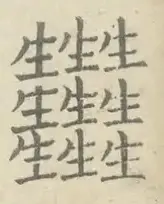 生生生
生生生
生生生